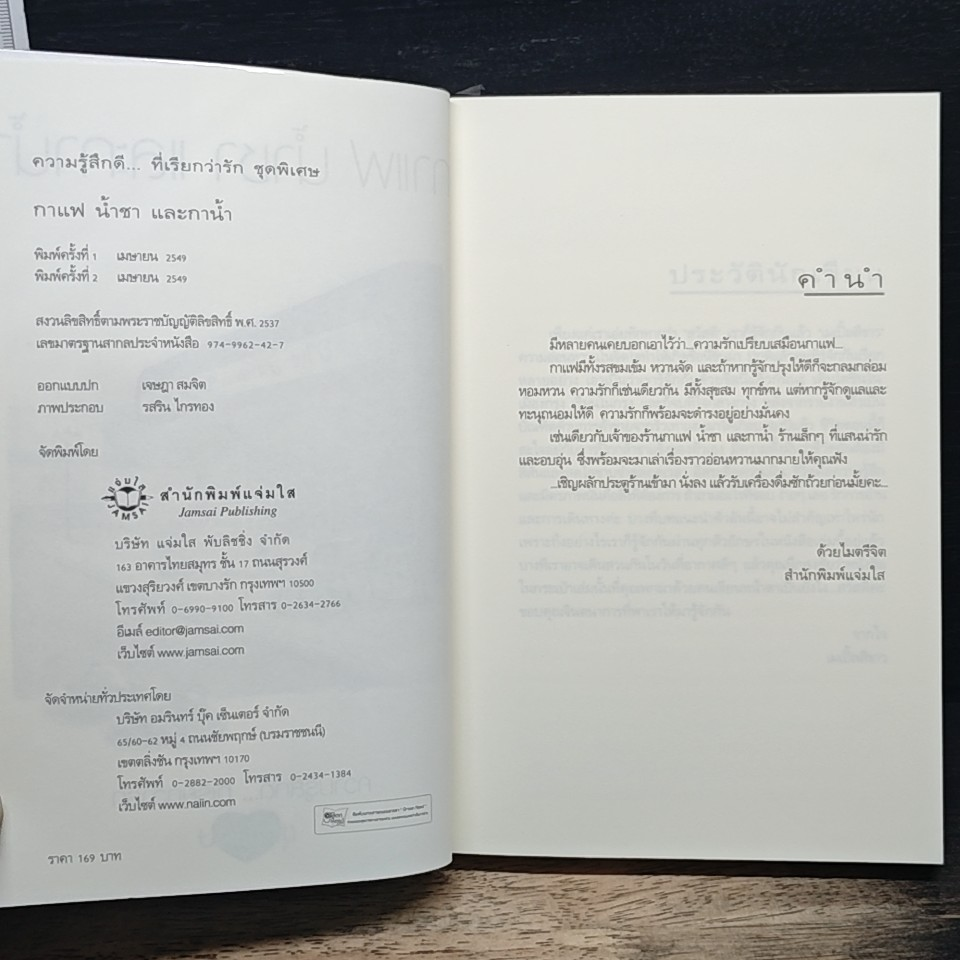 ความรู้สึกดี... ที่เรียกว่ารัก ชุดพิเศษ
กาแฟ น้ำชา และกาน้ำ
พิมพ์ครั้งที่ 1 เมษายน 2549
พิมพ์ครั้งที่ 2 เมษายน 2549
สงวนลิขสิทธิ์ตามพระราชบัญญัติลิขสิทธิ์ พ.ศ. 2537
เลขมาตรฐานสากลประจำหนังสือ 974-9962-42-7
ออกแบบปก เจษฎา สมจิต
ภาพประกอบ รสริน ไกรทอง
จัดพิมพ์โดย
แจ่มใส
JAMSAI
สำนักพิมพ์แจ่มใส
Jamsai Publishing
บริษัท แจ่มใส พับลิชชิ่ง จำกัด
163 อาคารไทยสมุทร ชั้น 17 ถนนสุรวงศ์
แขวงสุริยวงศ์ เขตบางรัก กรุงเทพฯ 10500
โทรศัพท์ 0-6990-9100 โทรสาร 0-2634-2766
อีเมล์ editor@jamsai.com
เว็บไซต์ www.jamsai.com
จัดจำหน่ายทั่วประเทศโดย
บริษัท อมรินทร์ บุ๊ค เซ็นเตอร์ จำกัด
65/60-62 หมู่ 4 ถนนชัยพฤกษ์ (บรมราชชนนี)
เขตตลิ่งชัน กรุงเทพฯ 10170
โทรศัพท์ 0-2882-2000 โทรสาร 0-2434-1384
เว็บไซต์ www.naiin.com
ราคา 169 บาท
คำนำ
มีหลายคนเคยบอกเอาไว้ว่า...ความรักเปรียบเสมือนกาแฟ...
กาแฟมีทั้งรสขมเข้ม หวานจัด และถ้าหากรู้จักปรุงให้ดีก็จะกลมกล่อม
หอมหวน ความรักก็เช่นเดียวกัน มีทั้งสุขสม ทุกข์ทน แต่หากรู้จักดูแลและ
ทะนุถนอมให้ดี ความรักก็พร้อมจะดำรงอยู่อย่างมั่นคง
เช่นเดียวกับเจ้าของร้านกาแฟ น้ำชา และกาน้ำ ร้านเล็กๆ ที่แสนน่ารัก
และอบอุ่น ซึ่งพร้อมจะมาเล่าเรื่องราวอ่อนหวานมากมายให้คุณฟัง
...เชิญผลักประตูร้านเข้ามา นั่งลง แล้วรับเครื่องดื่มซักถ้วยก่อนมั้ยคะ...
ด้วยไมตรีจิต
สำนักพิมพ์แจ่มใส